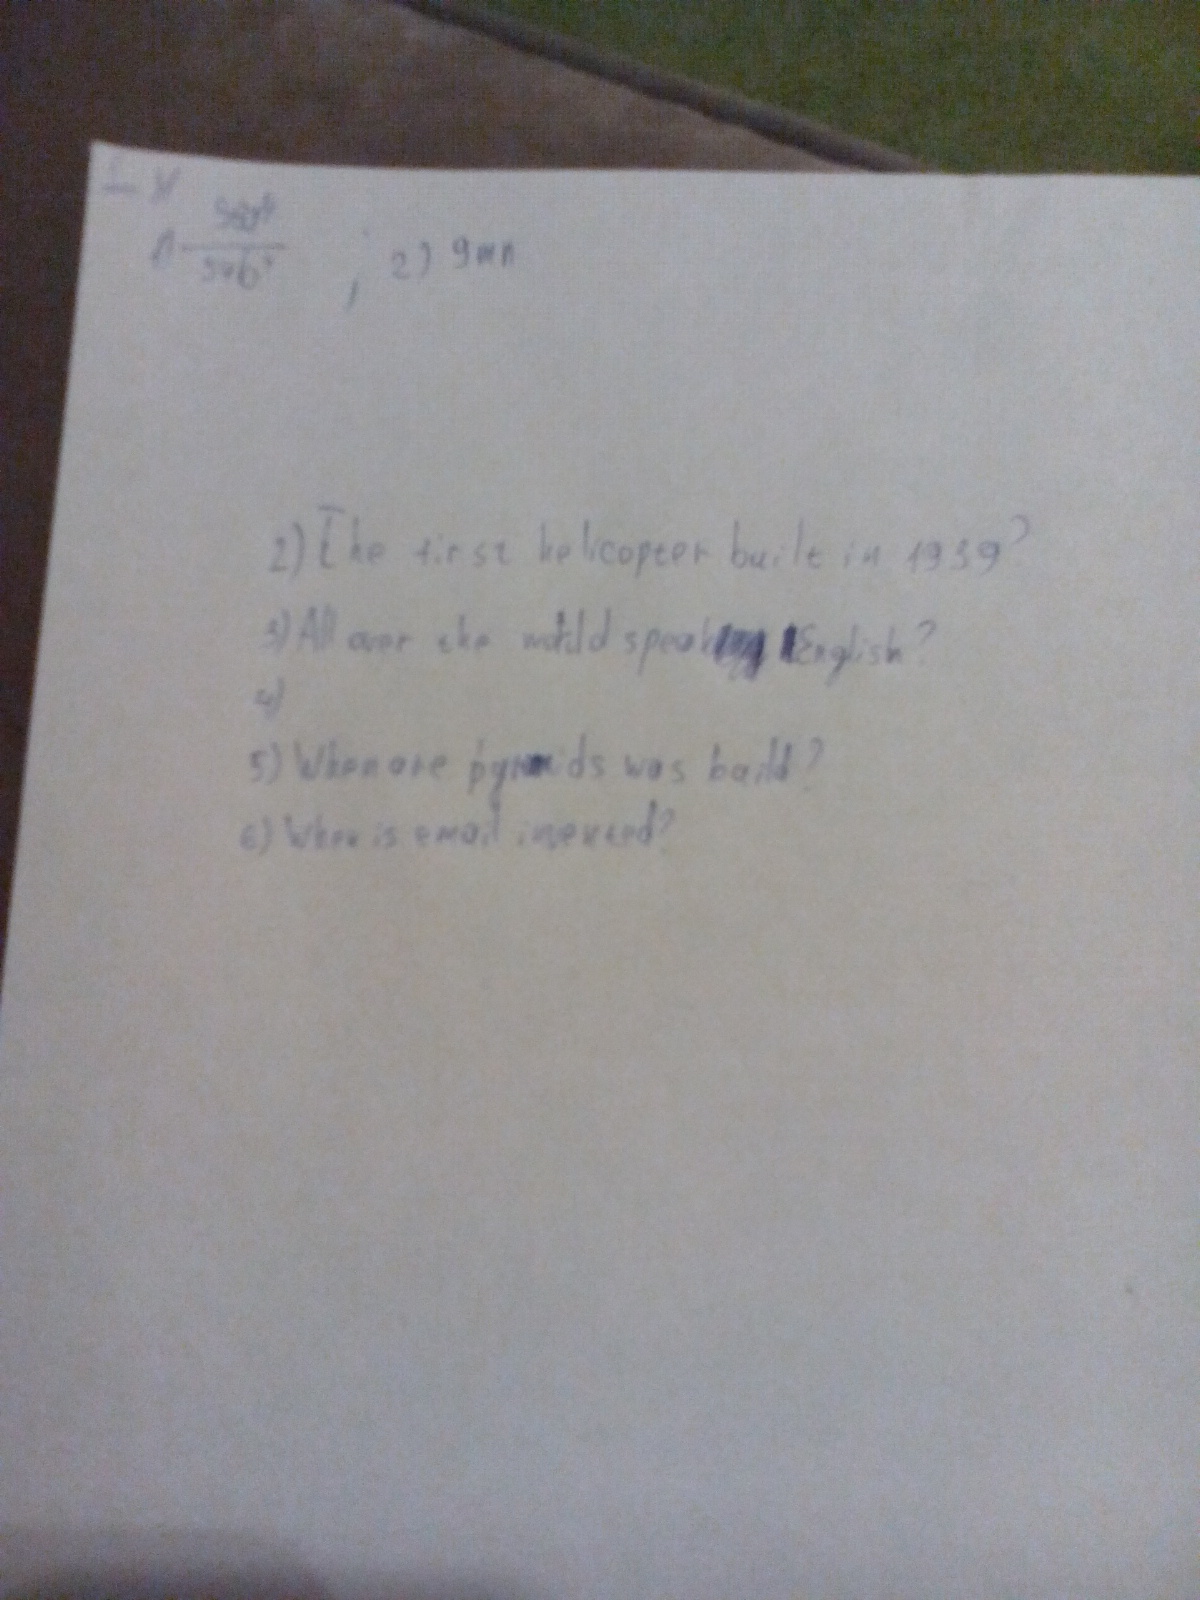 2) 9mn
2) The first helicopter built in 1939?
3) All over the world speak English?
4)
5) When are pyramids was build?
6) When is email invented?